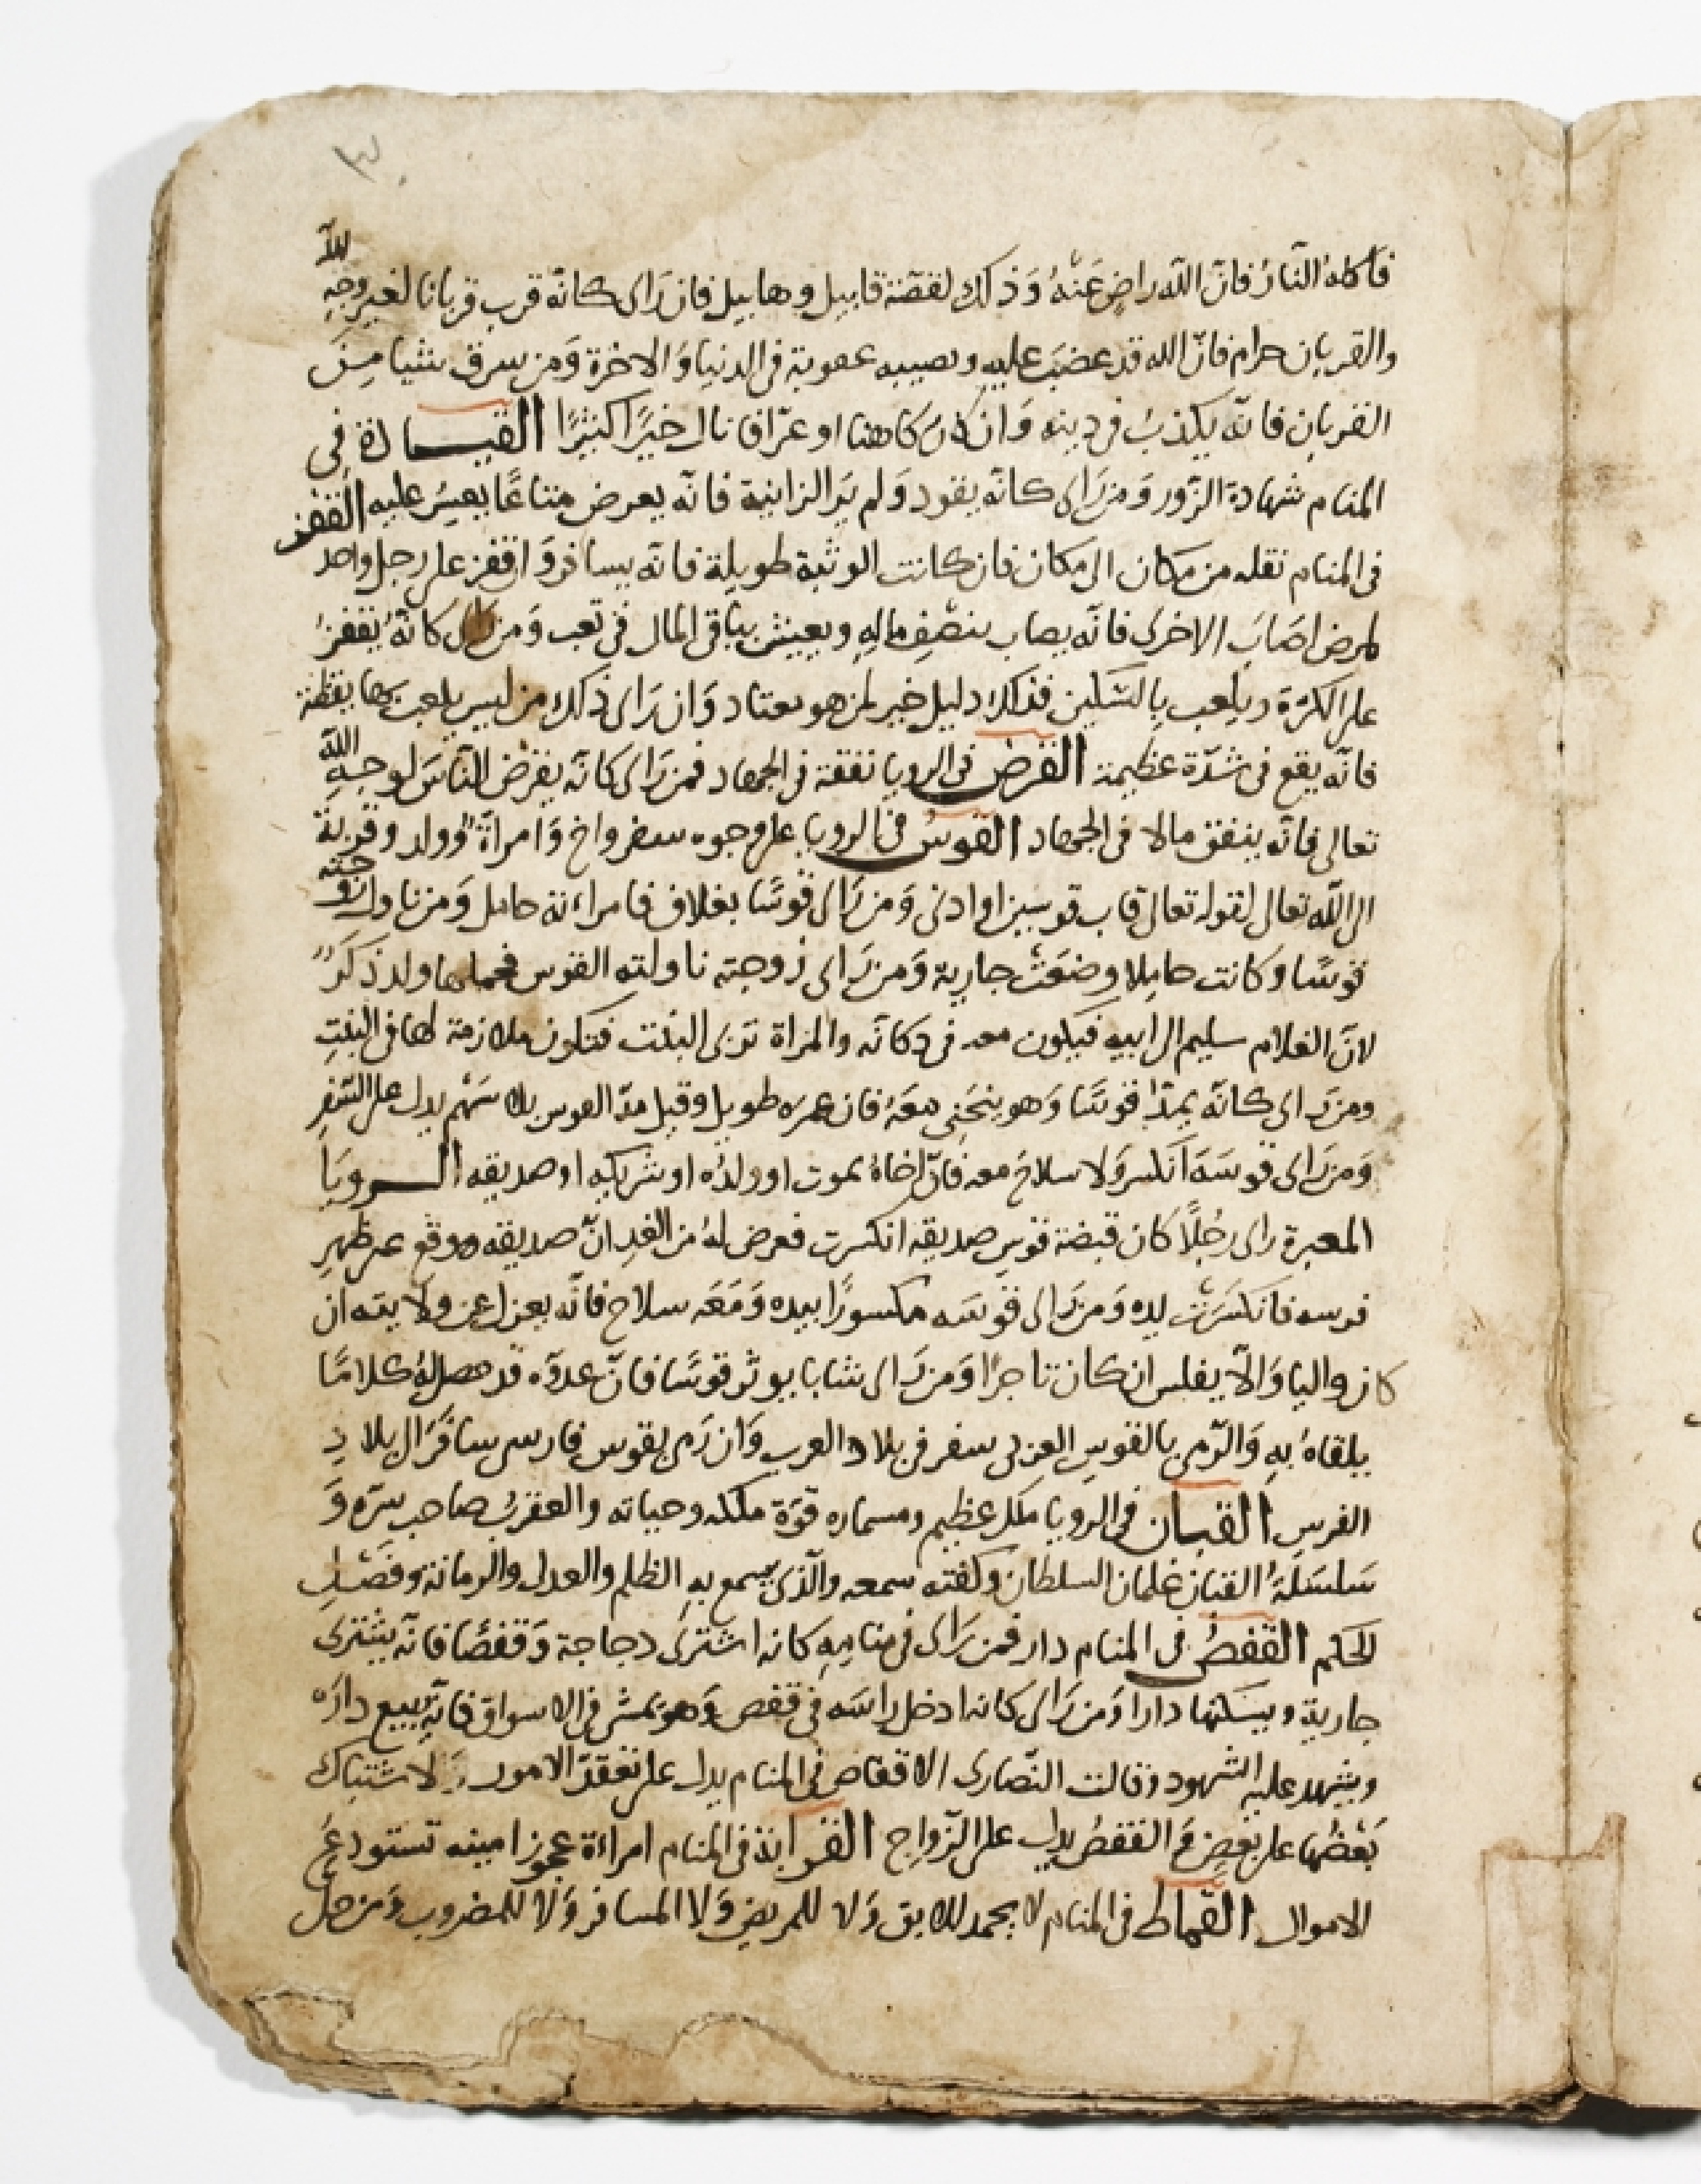 ٣
فاكله النّار فانّ الله راضٍ عَنْهُ وَذلك لقصّة قابيل وهابيل فان رَاى كانّه قرب قربانا لغير وجه لله
والقربان حرام فانّ الله قد غضبَ عليهِ ونصيبه عقوبة فى الدنيا وَالاخرة وَمن سرق شيئا مِنَ
القربانِ فانّه يكذبُ فى دينه وَان كان كاهنا او عرّافا نال خيرًا كثيرًا القيــادة فِى
المنام شهادة الزّور وَمن رَاى كانّه يقود وَلم يَر الزانية فانّه يعرض متاعًا يعسُر عليه القفز
فى المنام نقله من مكان الى مكان فان كانت الوثبة طويلة فانّه يسافر وَان قفز على رجل واحد
لمرض اصَابَ الاخرى فانّه يصاب بنصْفِ مالِهِ ويعيش بباقى المال فى تعب وَمن رَاى كانّهُ يقفزُ
على الكرَة ويلعب بالسّكين فذلك دليل خير لمن هو معتاد وَان رَاى ذلك من ليس يلعب بها يقظة
فانّه يقع فى شدّة عظيمة القرض فى الرويا نفقة فى الجهاد فمن رَاى كانّه يقرض النّاسَ لوجهِ الله
تعالى فانّه ينفق مالا فى الجهاد القوسُ فى الرويا على وجوه سفر واخ وَامراة وَولد وقربة
الى الله تعالى لقوله تعالى قاب قوسين او ادنى وَمن رَاى قوسًا بغلاف فامراءته حامل وَمن ناول زوجته
قوسًا وكانت حامِلا وضعَتْ جارية وَمن رَاى زوجته ناولته القوس فحملها ولد ذكرٌ
لانّ الغلام سليم الى ابيهِ فيكون معه فى دكانّه والمراة تربى البنت فتكون ملازمة لها فى البيتِ
ومن رَاى كانّه يمدّ قوسًا وَهو ينحَنى معَهُ فان عمره طويل وقيل مدّ القوس بلا سَهْم يدل على السّفرِ
وَمن رَاى قوسَهَ انكسر وَلا سلاحَ معه فانّ اخاهُ يموت او ولدُه او شريكهِ او صديقه الــرويَا
المعبرة راى رجُلًا كان قبضة قوسِ صديقه انكسرت فعرض لهُ من الغدِ انّ صديقه ووقع عن ظهرِ
فرسه فانكسَرَتْ يده وَمن رَاى قوسَه مكسورًا بيده وَمَعَه سلاح فانّه يعزل عن ولايته ان
كان واليا وَالّا يفلس ان كان تاجرًا وَمن رَاى شابا يوتر قوسًا فانّ عدوّه قد حصل لهُ كلامًا
يلقاهُ بهِ وَالرّمى بالقوس العربى سفر فى بلاد العرب وَان رَمى بقوس فارسى سافَرَ الى بلادِ
الفرس القبان فى الرويا ملك عظيم ومسماره قوّة ملكه وحياته والعقربُ صاحب سرّه وَ
سَلسَلَةُ القبان غلمان السلطان وكفته سمعه والّذى يسمع بهِ الظلم والعدل والرمانة وفَصْل
الحكم القفصُ فى المنام دار فمن رَاى فى منامِهِ كانه اشترى دجاجة وَقفصًا فانّه يشترى
جارية ويسكنها دارا وَمن رَاى كانه ادخل راسَه فى قفص وَهو يمشى فى الاسواق فانّه يبيع دارَه
ويشهد عليهِ الشهود وَقالت النّصارى الاقفاص فى المنام يدل على تعقّد الامور لاشتباك
بَعْضُها على بعضٍ وَالقفصُ يدل على الزّواج القرابة فى المنام امراءة عجوز امينه تستودعُ
الاموال القماط فى المنام لا يحمد للابق وَلا للمريضِ وَلا المسافر وَلا للمضروب وَمن حل